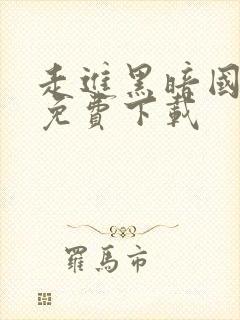 走進黑暗國
免費下載
羅馬市